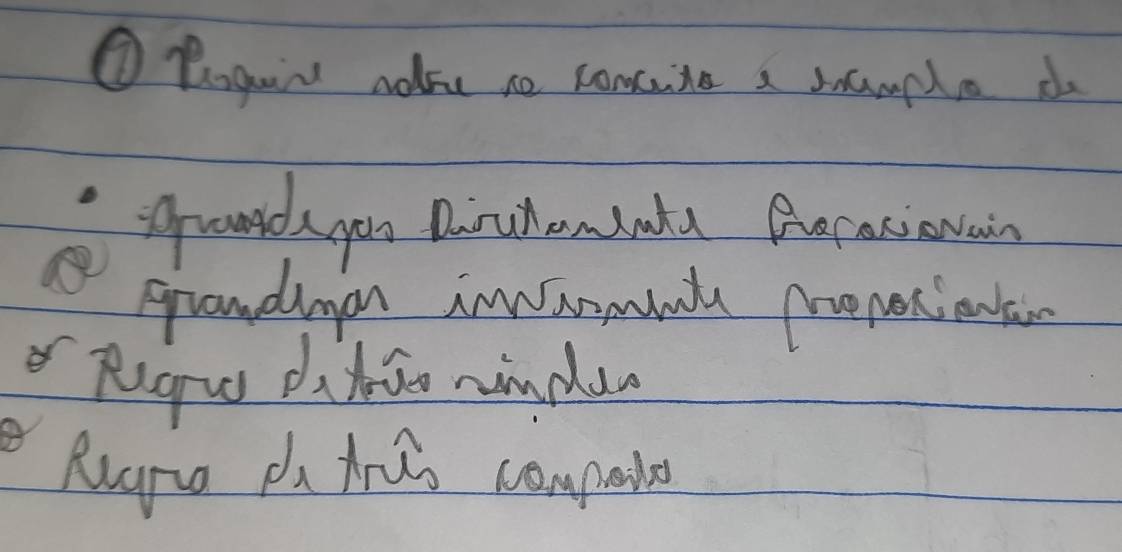 ① Pesquise sobre o conceito e exemplo de
• Grandezas Diretamente Proporcionais
Grandezas inversamente proporcionais
Regra de três simples
Regra de três composta